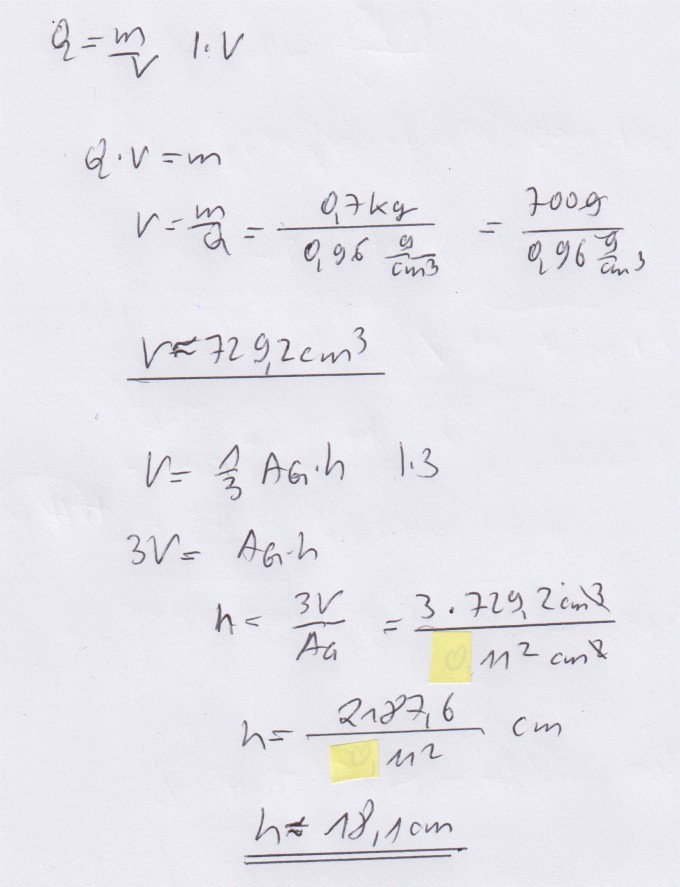 ϱ = m/V |·V
ϱ · V = m
V = m/ϱ = 0,7 kg / 0,96 g/cm³ = 700 g / 0,96 g/cm³
V ≈ 729,2 cm³
V = 1/3 AG · h |·3
3V = AG · h
h = 3V/AG = 3 · 729,2 cm³ / 11² cm²
h = 2187,6 / 11² cm
h ≈ 18,1 cm